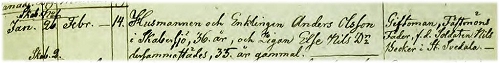 Jan. 26 Febr. – 14. Husmannen och Enklingen Anders Olsson
i Skabersjö, 36. år, och Pigan Else Nils Dr
dersammastädes, 35. år gammal.
Skab. 2.
Giftoman, Fästmöns
Fader, f.d. Soldaten Nils
Becker i St. Svedala.